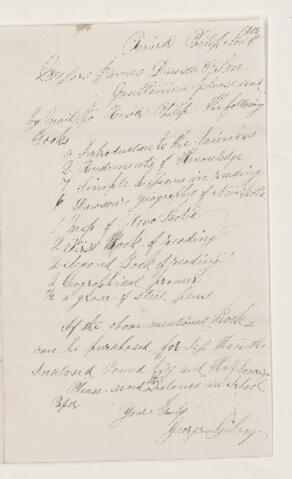 River Philip Nov 6th
Messrs James Dawson & Son
Gentlemen please send
by to River Philip the following
Books
2 Introduction to the Sciences
2 Rudiments of Knowledge
7 Simple Lessons in reading
6 Dawson's geography of Nova Scotia
1 Map of Nova Scotia
2 First Book of reading
2 Second Book of reading
2 Geographical Primer
½ a grose of steel pens
If the above mentioned Books
can be purchased for less than the
Inclosed Pound bill and Half Sovereign
Please send the balance in School
Paper
Yours Truly
George